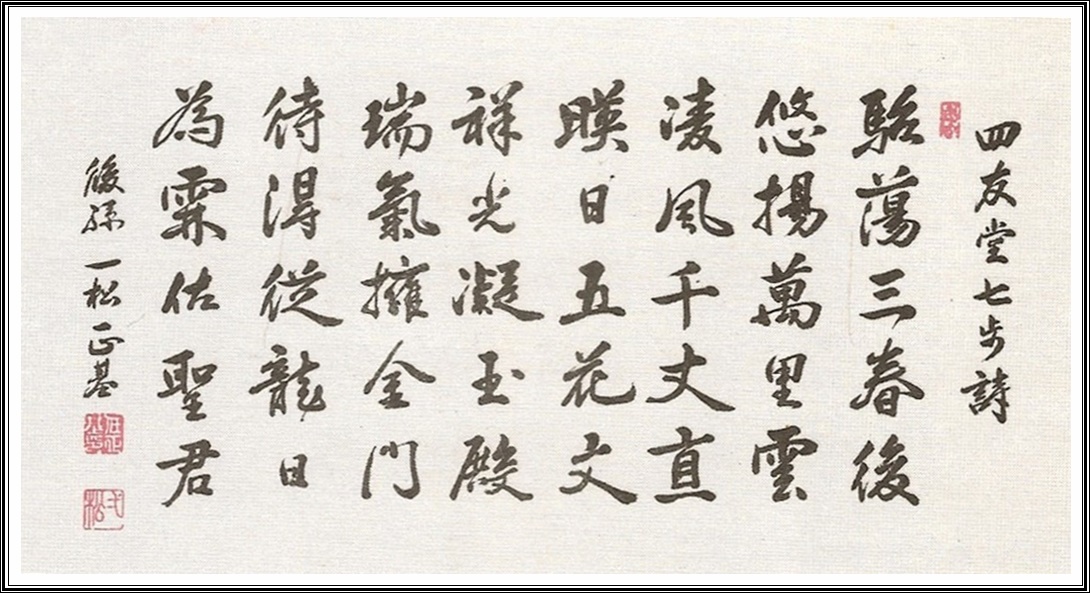 四友堂七步詩
駘蕩三春後
悠揚萬里雲
凌風千丈直
暎日五花文
祥光凝玉殿
瑞氣擁金門
待得從龍日
為霖佑聖君
後孫一松正基